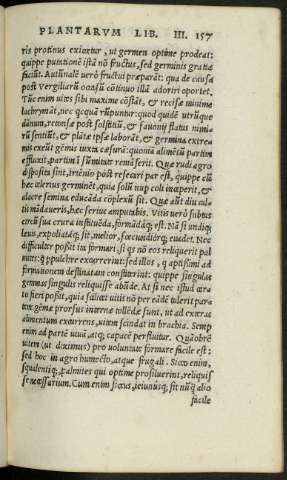 PLANTARVM LIB. III. 157
ris protinus exiturt, ut germen optime prodeat:
quippe putatione istā nō fructus, sed germinis gratia
faciūt. Autūnale uerò fructui præparāt: qua de causa
post uergiliarū occasū cōtinuo illā adoriri oportet.
Tūc enim uites sibi maxime cōstāt, & recisæ minime
lachrymāt, nec qcquā rūpuntur: quod quidē utrūque
dānum, retonsæ post solstitiū, & fauonij flatus nimi-
rū sentiūt, & plātæ ipsæ laborāt, & germina extrea
nis exeūt gēmis iuxta cæsurā: quonia alimētū partim
effluxit, partim ī sūmitate remāserit. Quæ rudi agro
dispositæ sint, triēnio post resecari par est, quippe cū
hæc uberius germinēt, quia solū nup coli inceperit, &
alacre semina educāda cōplexū sit. Quæ aūt diu cul-
tū mādaueris, hæc serius amputabis. Vitis uerò subtus
circū sua crura instituēda, formādaq; est. Nā si undiq;
leues, expoliatæq; sit, melior, fœcundiorq; euadet. Nec
difficulter possit ita formari, si qs nō eos reliquerit pal
mites: q pulchre exacrerint: sed illos, q aptissimi ad
firmationem destinatam constiterint: quippe singulas
gemmas singulis reliquisse abūde. At si nec istud œra
to fieri possit, quia saliat uitis nō per eādē tulerit para
tæ gēmæ prorsus internæ tollēdæ sunt, ut ad exteras
alimentum excurrens, uitem scindat in brachia. Semp
enim ad partē uiuā, atq; capacē perfluitur. Quāobrē
uitem (ut diximus) pro uoluntate formare facile est:
sed hoc in agro humecto, atque frugali. Sicco enim,
squalentiq; palmites qui optime prosiluerint, reliquis
se necessarium. Cum enim siccus, ieiunusq; sit nūq̄ alio
facile